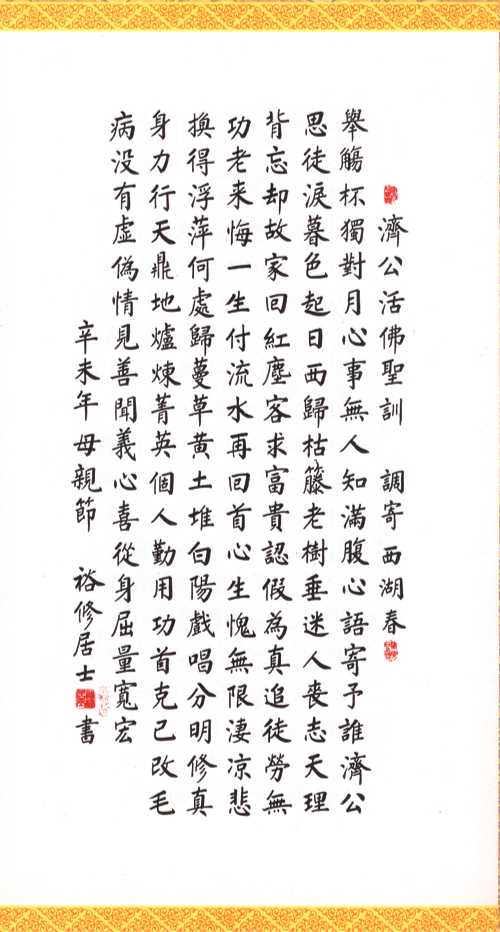 濟公活佛聖訓 調寄西湖春
舉觴杯獨對月心事無人知滿腹心語寄予誰濟公
思徒淚暮色起日西歸枯籐老樹垂迷人喪志天理
背忘却故家回紅塵客求富貴認假為真追徒勞無
功老来悔一生付流水再回首心生愧無限淒凉悲
換得浮萍何處歸蔓草黃土堆白陽戲唱分明修真
身力行天鼎地爐煉菁英個人勤用功首克己改毛
病没有虛偽情見善聞義心喜從身屈量寬宏
辛未年母親節 裕修居士書